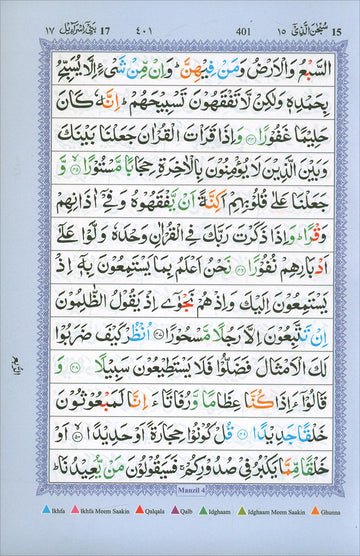 ١٧ بنی اسرآءیل 17 ٤٠١ 401 سُبْحٰنَ الَّذِیْۤ ١٥ 15
السَّبْعُ وَالْاَرْضُ وَمَنْ فِیْهِنَّ ؕ وَاِنْ مِّنْ شَیْءٍ اِلَّا یُسَبِّحُ
بِحَمْدِهٖ وَلٰكِنْ لَّا تَفْقَهُوْنَ تَسْبِیْحَهُمْ ؕ اِنَّهٗ كَانَ
حَلِیْمًا غَفُوْرًا ﴿۴۴﴾ وَاِذَا قَرَاْتَ الْقُرْاٰنَ جَعَلْنَا بَیْنَكَ
وَبَیْنَ الَّذِیْنَ لَا یُؤْمِنُوْنَ بِالْاٰخِرَةِ حِجَابًا مَّسْتُوْرًا ﴿۴۵﴾ وَّ
جَعَلْنَا عَلٰی قُلُوْبِهِمْ اَكِنَّةً اَنْ یَّفْقَهُوْهُ وَفِیْۤ اٰذَانِهِمْ
وَقْرًا ؕ وَاِذَا ذَكَرْتَ رَبَّكَ فِی الْقُرْاٰنِ وَحْدَهٗ وَلَّوْا عَلٰۤی
اَدْبَارِهِمْ نُفُوْرًا ﴿۴۶﴾ نَحْنُ اَعْلَمُ بِمَا یَسْتَمِعُوْنَ بِهٖۤ اِذْ
یَسْتَمِعُوْنَ اِلَیْكَ وَاِذْ هُمْ نَجْوٰۤی اِذْ یَقُوْلُ الظّٰلِمُوْنَ
اِنْ تَتَّبِعُوْنَ اِلَّا رَجُلًا مَّسْحُوْرًا ﴿۴۷﴾ اُنْظُرْ كَیْفَ ضَرَبُوْا
لَكَ الْاَمْثَالَ فَضَلُّوْا فَلَا یَسْتَطِیْعُوْنَ سَبِیْلًا ﴿۴۸﴾ وَ
قَالُوْۤا ءَاِذَا كُنَّا عِظَامًا وَّرُفَاتًا ءَاِنَّا لَمَبْعُوْثُوْنَ
خَلْقًا جَدِیْدًا ﴿۴۹﴾ قُلْ كُوْنُوْا حِجَارَةً اَوْ حَدِیْدًا ﴿۵۰﴾ اَوْ
خَلْقًا مِّمَّا یَكْبُرُ فِیْ صُدُوْرِكُمْ ۚ فَسَیَقُوْلُوْنَ مَنْ یُّعِیْدُنَا ؕ
Manzil 4
Ikhfa Ikhfa Meem Saakin Qalqala Qalb Idghaam Idghaam Meem Saakin Ghunna